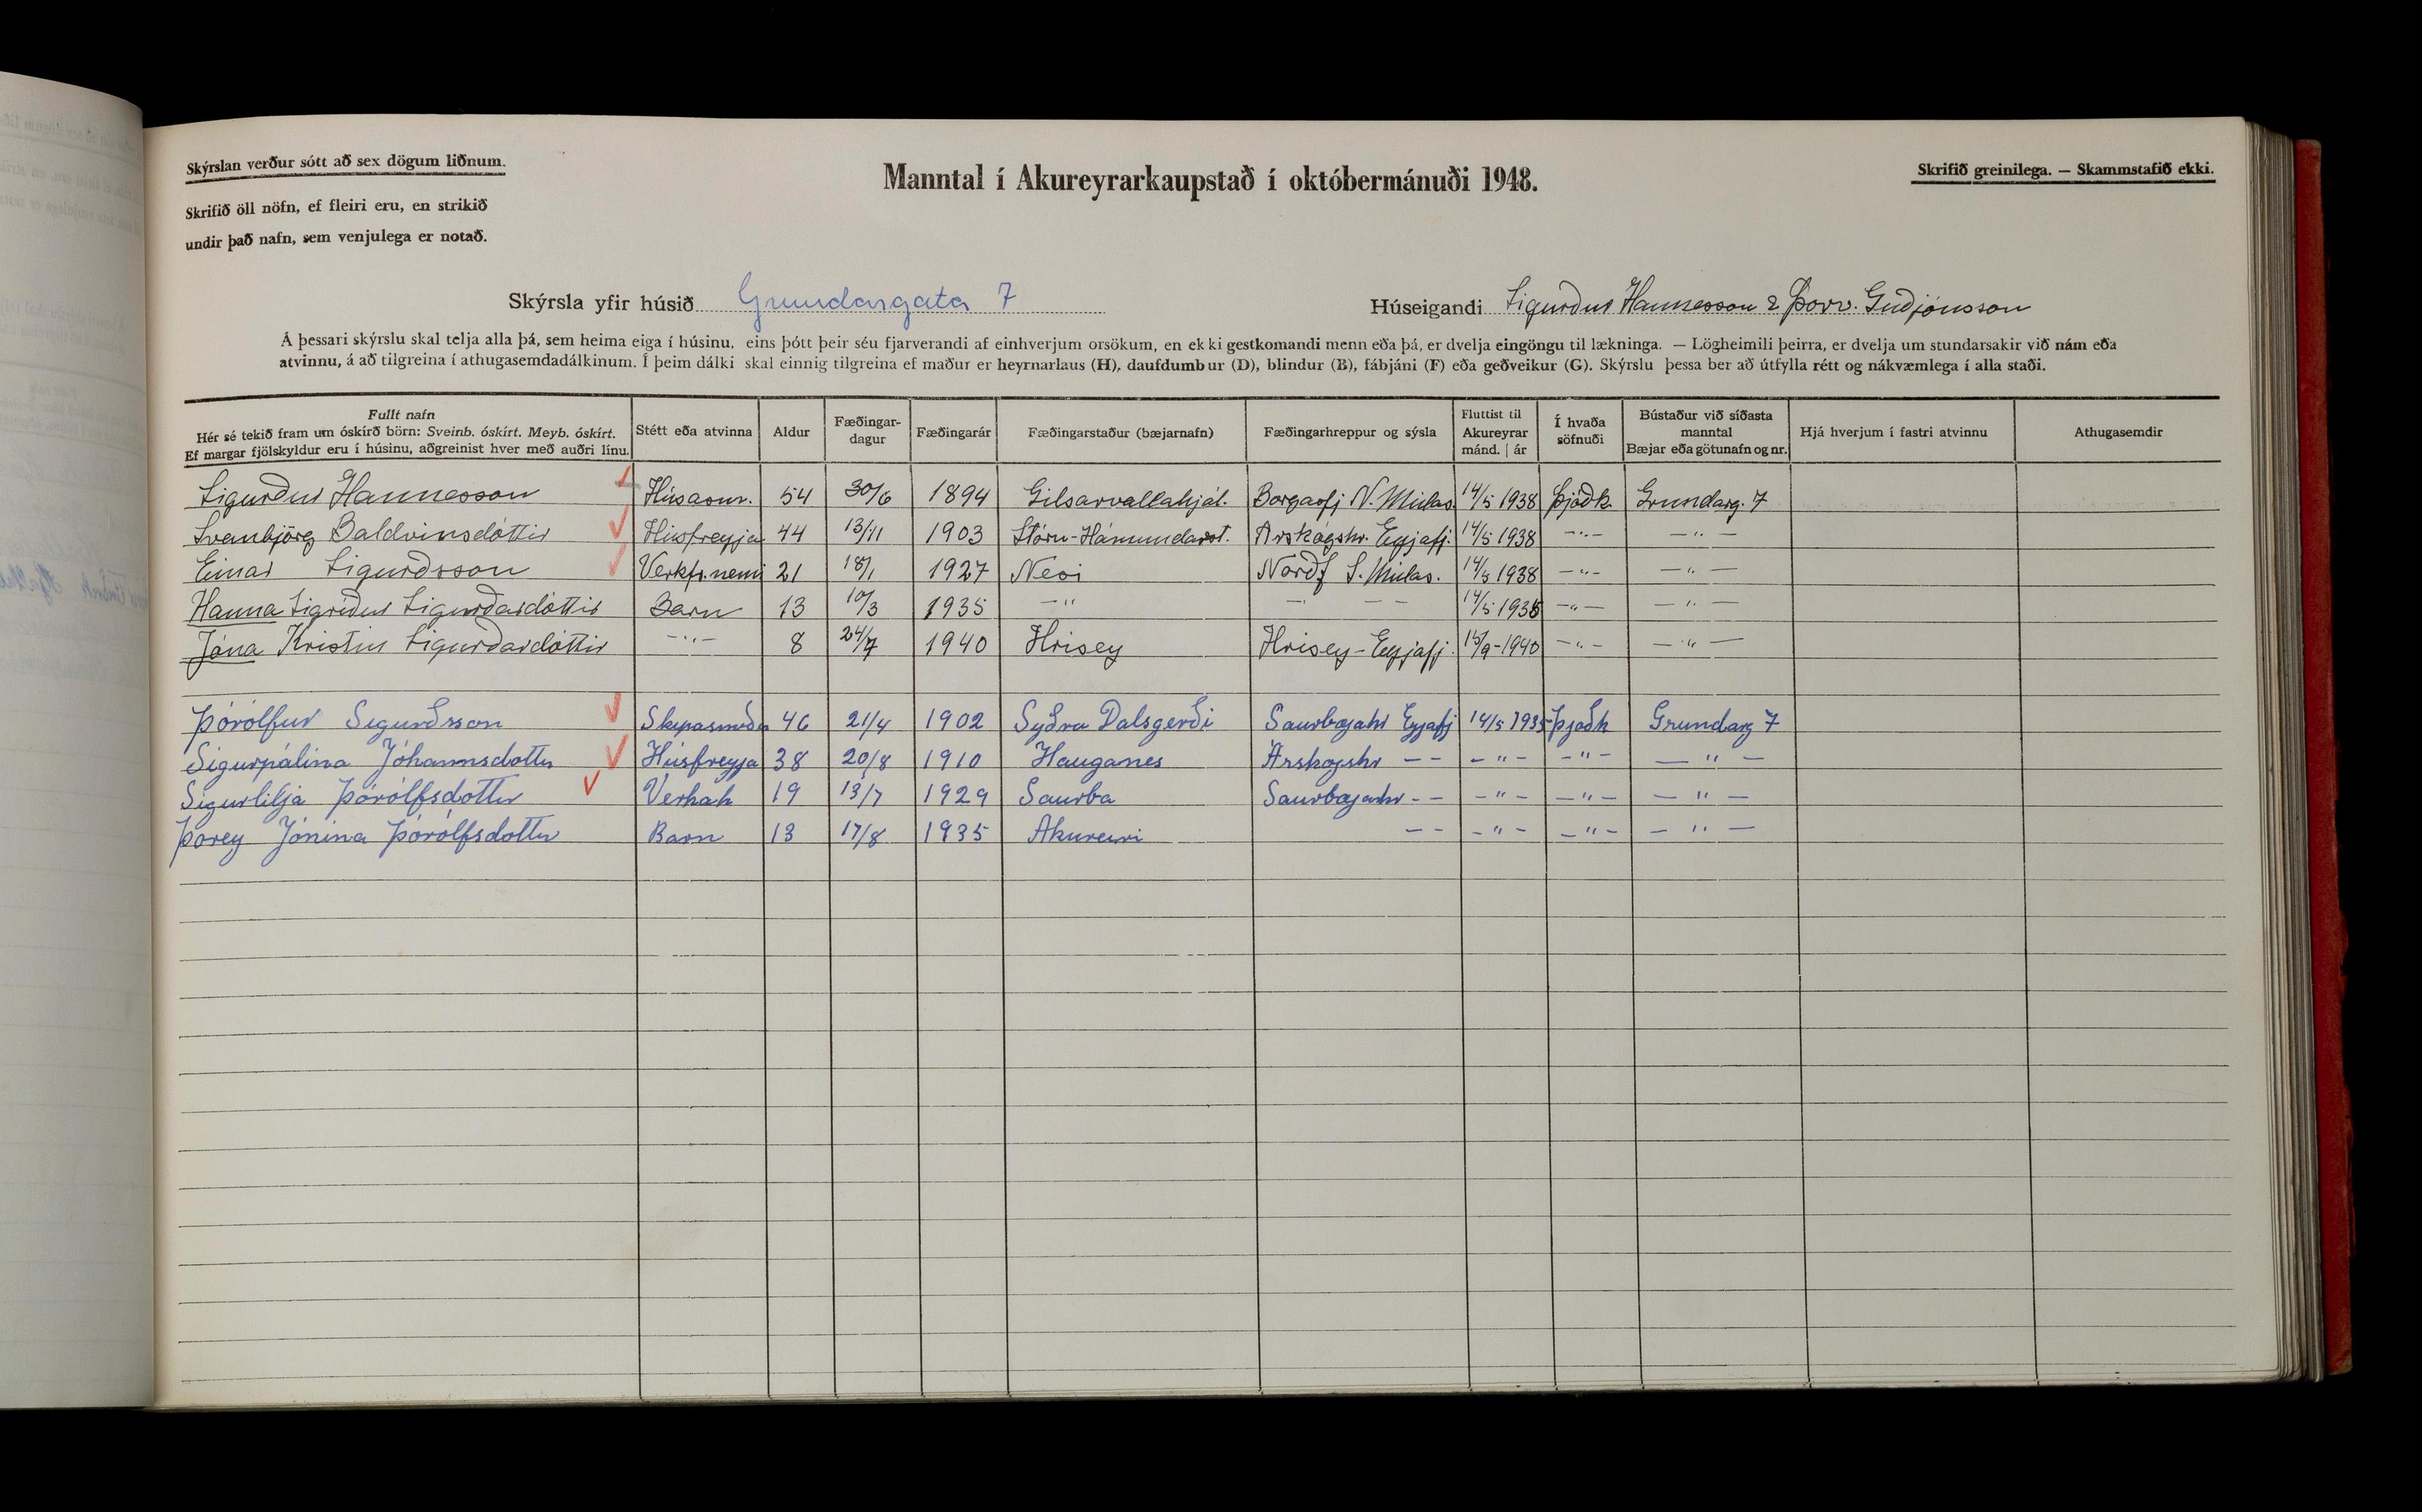 Skýrslan verður sótt að sex dögum liðnum.
Manntal í Akureyrarkaupstað í októbermánuði 1948.
Skrifið greinilega. — Skammstafið ekki.
Skrifið öll nöfn, ef fleiri eru, en strikið
undir það nafn, sem venjulega er notað.
Skýrsla yfir húsið Grundargata 7
Húseigandi Sigurður Hannesson & Þorv. Guðjónsson
Á þessari skýrslu skal telja alla þá, sem heima eiga í húsinu, eins þótt þeir séu fjarverandi af einhverjum orsökum, en ekki gestkomandi menn eða þá, er dvelja eingöngu til lækninga. — Lögheimili þeirra, er dvelja um stundarsakir við nám eða
atvinnu, á að tilgreina í athugasemdadálkinum. Í þeim dálki skal einnig tilgreina ef maður er heyrnarlaus (H), daufdumbur (D), blindur (B), fábjáni (F) eða geðveikur (G). Skýrslu þessa ber að útfylla rétt og nákvæmlega í alla staði.
Fullt nafn
Hér sé tekið fram um óskírð börn: Sveinb. óskírt. Meyb. óskírt.
Ef margar fjölskyldur eru í húsinu, aðgreinist hver með auðri línu.
Stétt eða atvinna
Aldur
Fæðingar-
dagur
Fæðingarár
Fæðingarstaður (bæjarnafn)
Fæðingarhreppur og sýsla
Fluttist til
Akureyrar
mánd. | ár
Í hvaða
söfnuði
Bústaður við síðasta
manntal
Bæjar eða götunafn og nr.
Hjá hverjum í fastri atvinnu
Athugasemdir
Sigurður Hannesson Húsasm. 54 30/6 1894 Gilsarvallahjál. Borgarfj N. Múlas. 14/5 1938 Þjóðk. Grundarg. 7
Sveinbjörg Baldvinsdóttir Húsfreyja 44 13/11 1903 Stóru-Hámundarst. Árskógshr. Eyjafj. 14/5 1938 -"- -"-
Einar Sigurðsson Verkfr.nemi 21 18/1 1927 Nesi Norðf S. Múlas. 14/5 1938 -"- -"-
Hanna Sigríður Sigurðardóttir Barn 13 10/3 1935 -"- - - - 14/5 1938 -"- -"-
Jóna Kristín Sigurðardóttir -"- 8 24/7 1940 Hrísey Hrísey - Eyjafj. 15/9-1940 -"- -"-
Þórólfur Sigurðsson Skipasmíðar 46 21/4 1902 Syðra Dalsgerði Saurbæjahr Eyjafj 14/5 1935 Þjoðk Grundarg 7
Sigurpálina Jóhannsdottir Húsfreyja 38 20/8 1910 Hauganes Árskogshr - - -"- -"- -"-
Sigurlilja Þórólfsdottir Verkak 19 13/7 1929 Saurba Saurbæjarhr - - -"- -"- -"-
Þorey Jónina Þórólfsdottir Barn 13 17/8 1935 Akureiri - - -"- -"- -"-